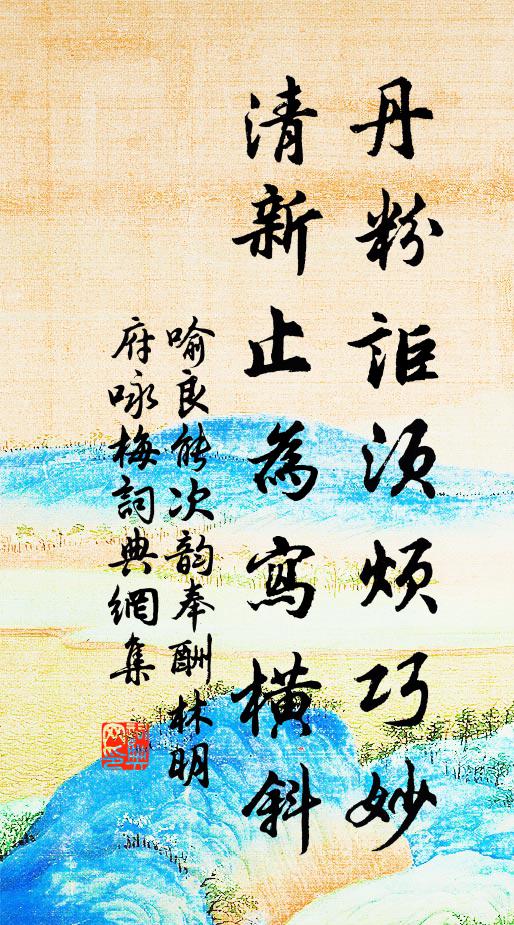 丹粉詎須煩巧妙
清新止為寫橫斜
喻良能次韵奉酬林明
府咏梅詞典網集